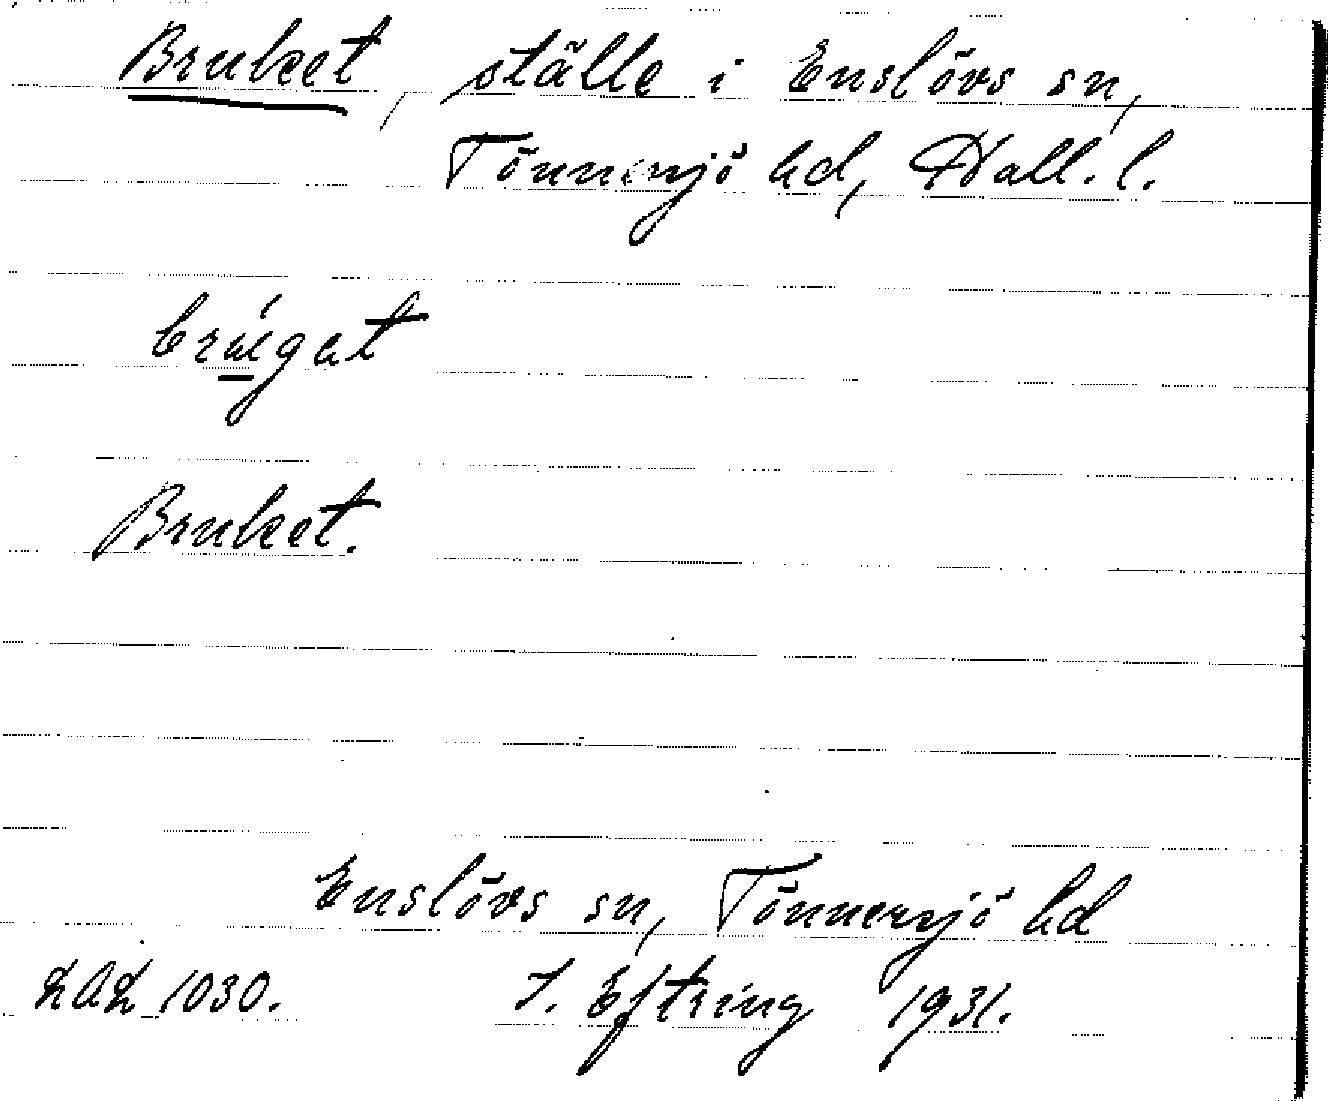 Bruket, ställe i Enslövs sn,
Tönnersjö hd, Hall. l.
Bruket.
Enslövs sn, Tönnersjö hd
LAL 1030. I. Eftring 1931.